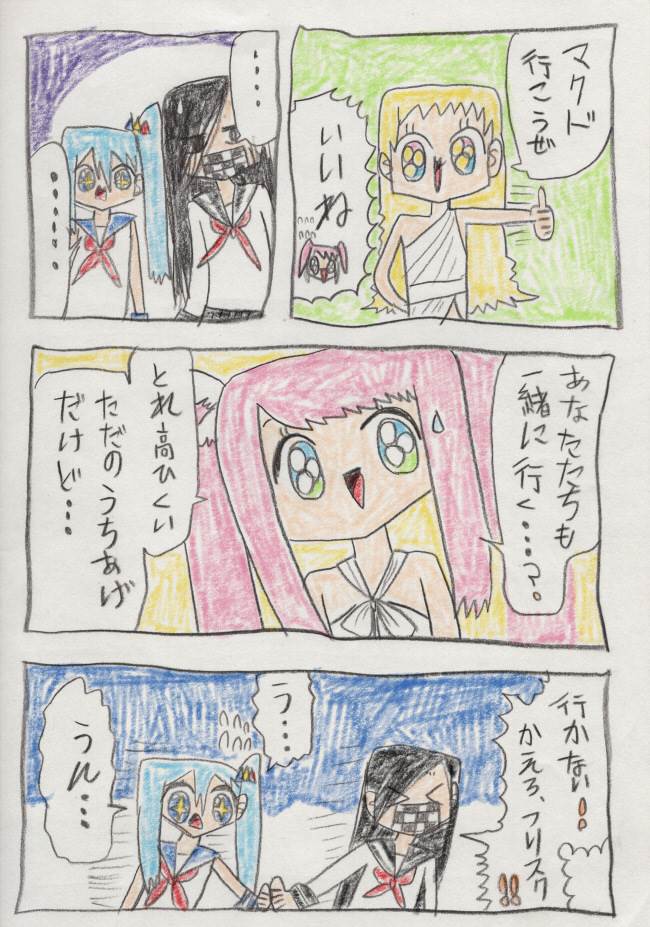 マクド
行こうぜ
いいね
・・・・
・・・・・・
あなたたちも
一緒に行く・・・?。
とれ高ひくい
ただのうちあげ
だけど・・・
行かない!
かえろ、フリスク!!
う・・・
うん・・・